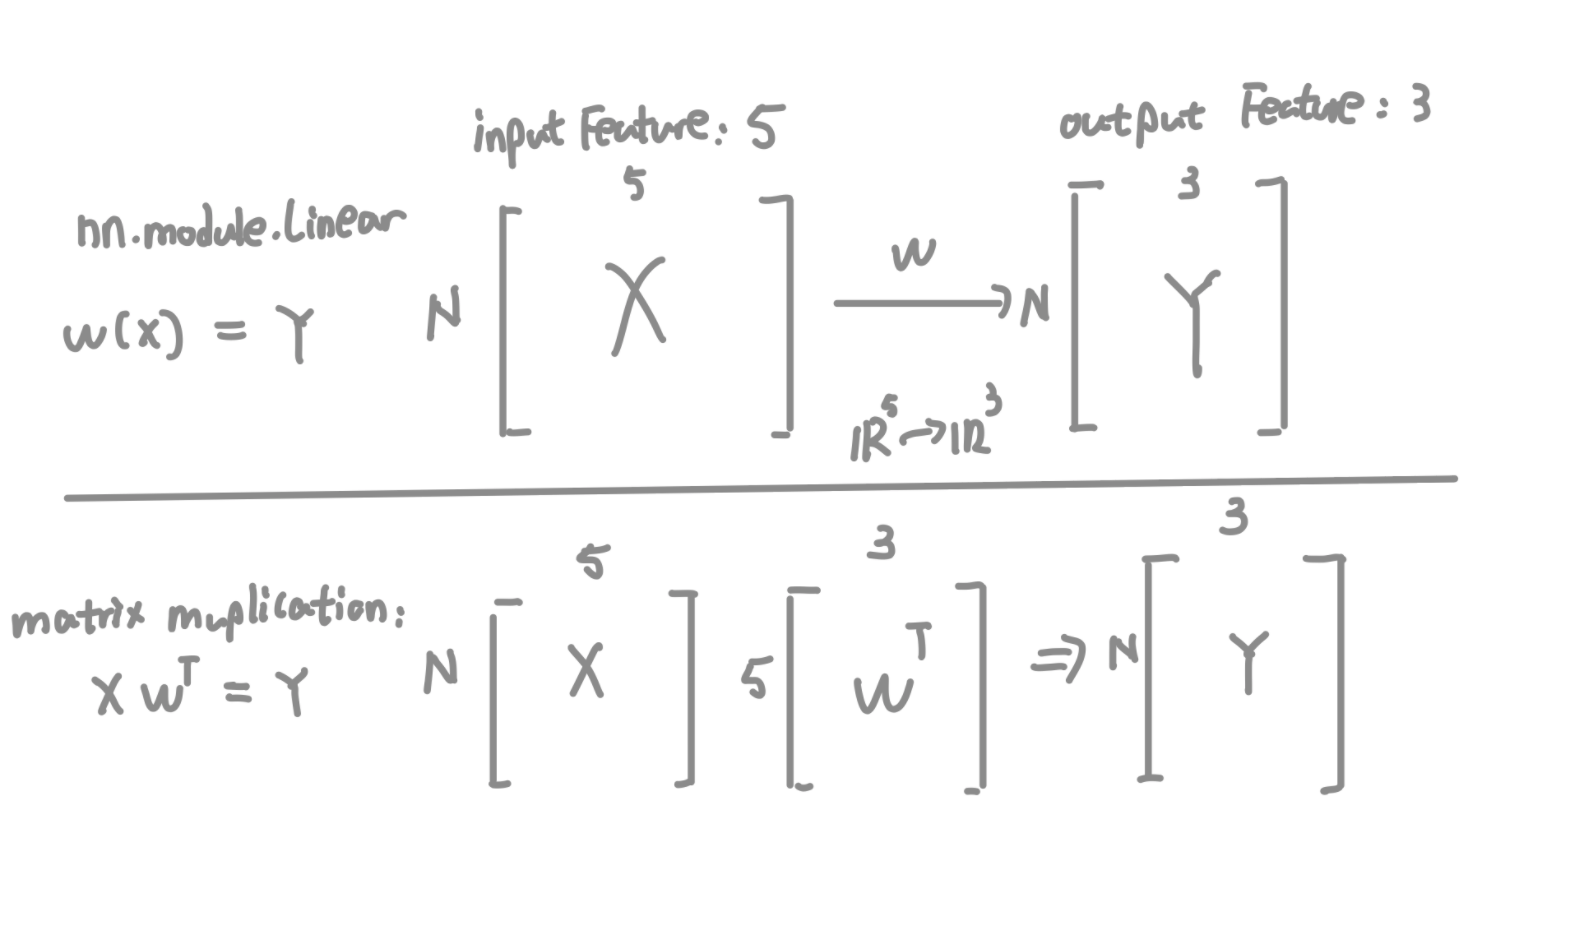 input Feature: 5
output Feature: 3
5
3
nn.module.Linear
W
W(X) = Y
N
X
N
Y
ℝ⁵→ℝ³
5
3
3
matrix muplication:
X Wᵀ = Y
N
X
5
Wᵀ
⇒
N
Y